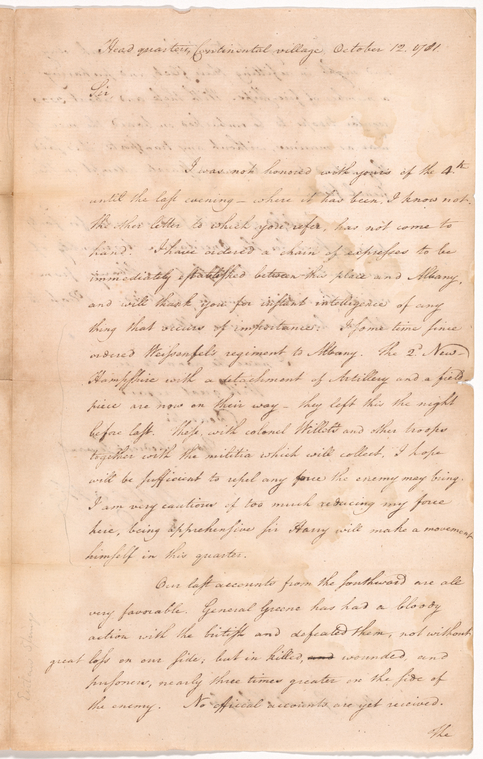 Head quarters, Continental village, October 12. 1781.
Sir
I was not honored with yours of the 4th
until the last evening – where it has been, I know not.
The other letter to which you refer, has not come to
hand. I have ordered a chain of expresses to be
immediately established between this place and Albany,
and will thank you for instant intelligence of any
thing that occurs of importance: I some time since
ordered Weissenfels regiment to Albany. The 2d New-
Hampshire with a detachment of Artillery and a field
piece are now on their way – they left this the night
before last. These with colonel Willetts and other troops
together with the militia which will collect, I hope
will be sufficient to repel any force the enemy may bring.
I am very cautious of too much reducing my force
here, being apprehensive Sir Harry will make a movement
himself in this quarter.
Our last accounts from the southward are all
very favorable. General Greene has had a bloody
action with the british and defeated them, not without
great loss on our side; but in killed, and wounded, and
prisoners, nearly three times greater on the side of
the enemy. No official accounts are yet received.
The